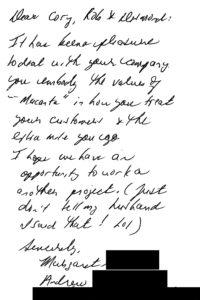 Dear Cory, Rob & Desmond:
It has been a pleasure
to deal with your company
you embody the values of
"Mucanta" in how you treat
your customers & the
extra mile you go
I hope we have an
opportunity to work a
another project. (Just
don't tell my husband
I said that! Lol)
Sincerely,
Margaret
Andrew